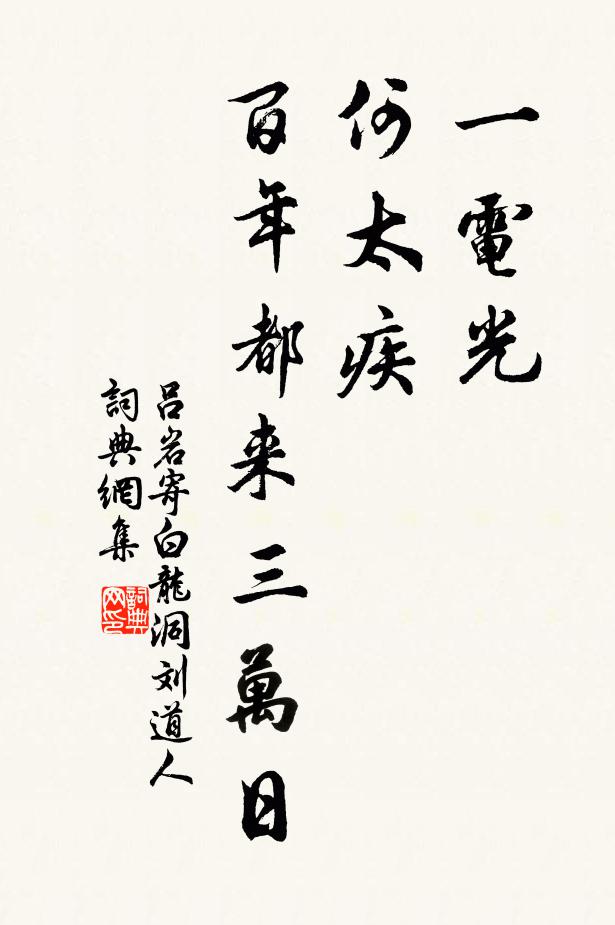 一電光
何太疾
百年都来三萬日
吕岩寄白龍洞刘道人
詞典網集
詞典网印